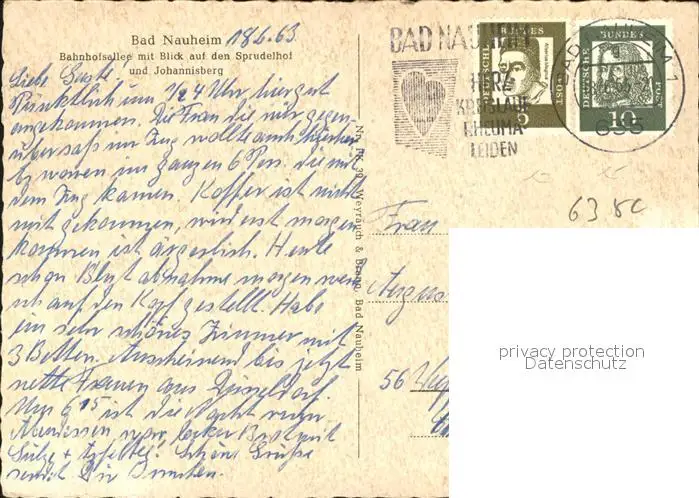 Bad Nauheim 18.6.63
Bahnhofsallee mit Blick auf den Sprudelhof
und Johannisberg
Liebe Gusti!
Pünktlich um 1/2 4 Uhr hier gut
angekommen. Die Frau die mir gegen-
über saß im Zug wollte auch hierher
Es waren im ganzen 6 Pers. die mit
dem Zug kamen. Koffer ist nicht
mit gekommen, wird erst morgen
kommen ist ärgerlich. Heute
schon Blut abnahme morgen werde
ich auf den Kopf gestellt. Habe
ein sehr schönes Zimmer mit
3 Betten. Anscheinend bis jetzt
nette Frauen aus Düsseldorf.
Um 6 15 ist die Nacht rum.
Abendessen war lecker Brot mit
Sülze + Schöne Grüße
sendet Dir
Weyrauch & Bad Nauheim
BAD NAUHEIM
HERZ
KREISLAUF
RHEUMA-
LEIDEN
DEUTSCHE BUNDESPOST
DEUTSCHE BUNDESPOST
10
BAD NAUHEIM 1
635
63 8c
Frau
56
privacy protection
Datenschutz